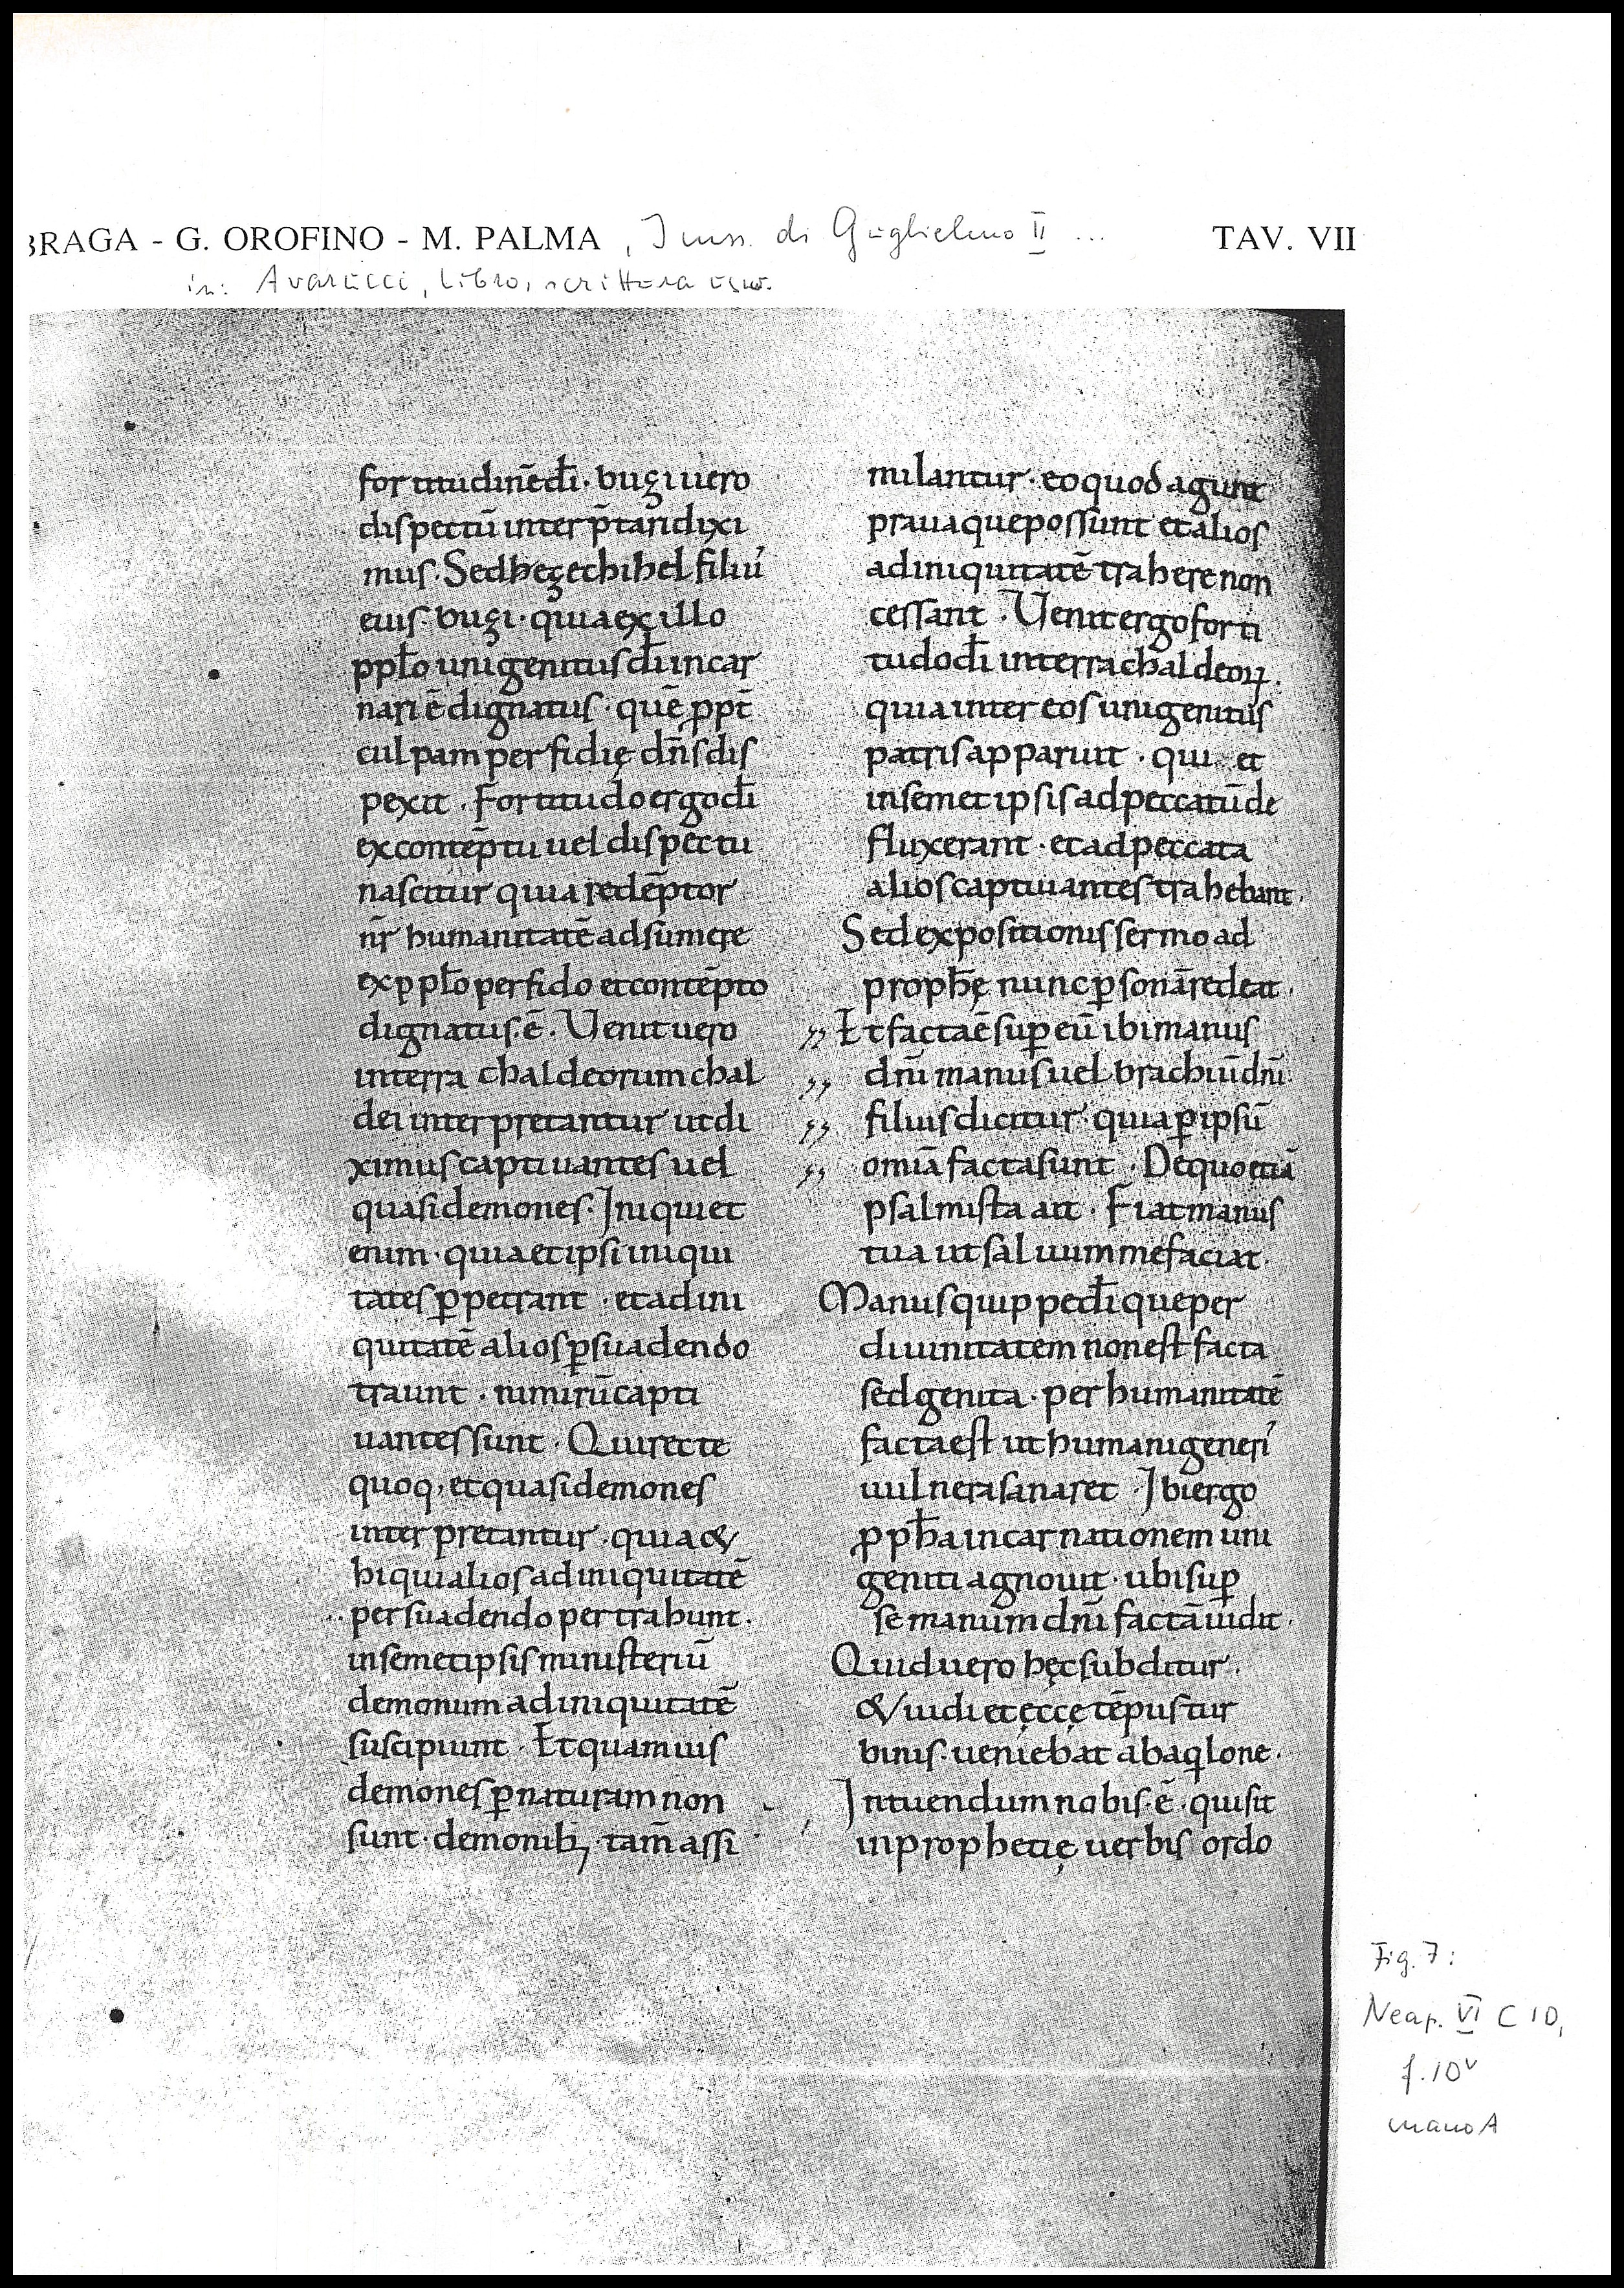 BRAGA - G. OROFINO - M. PALMA , I mss. di Guglielmo II ... TAV. VII
in: Avarucci, Libro, scrittura usw.
fortitudinēdī · buzi uero
dispectū inter p̄tari dixi
mus · Sed hezechihel filiu᾽
eius · buzi · quia ex illo
pplo unigenitus dī incar
nari ē dignatus · quē ppt̄
culpam perfidię dn̄s dis
pexit · Fortitudo ergo dī
ex contēptu uel dispectu
nascitur quia redēptor
nr̄ humanitatē adsumere
ex pplo perfido et contēpto
dignatus · ē · Venit uero
in terra chaldeorum chal
dei interpretantur ut di
ximus captiuantes uel
quasi demones · Iniqui et
enim · quia et ipsi iniqui
tates ꝑpetrant · et ad ini
quitatē alios ꝑsuadendo
traunt · nimirū capti
uantes sunt · Qui recte
quoq, et quasi demones
interpretantur · quia &
hi qui alios ad iniquitatē
persuadendo pertrahunt ·
in semetipsis ministeriū
demonum ad iniquitatē
suscipiunt · Et quamuis
demones ꝑ naturam non
sunt · demonibꝫ · tam̄ assi
milantur · eo quod agunt
praua que possunt et alios
ad iniquitatē trahere non
cessant · Venit ergo forti
tudo dī in terra chaldeoꝝ ·
quia inter eos unigenitus
patris apparuit · qui et
in semetipsis ad peccatū de
fluxerant · et ad peccata
alios captiuantes trahebant ·
Sed expositionis sermo ad
prophę nunc ꝑsonā redeat ·
,, Et facta ē suꝑ eū ibi manus
,, dn̄i manus uel brachiū dn̄i ·
,, filius dicitur · quia ꝑ ipsū
,, omīa facta sunt · De quo etiā
psalmista ait · Fiat manus
tua ut saluum me faciat ·
Manus quippe dī que per
diuinitatem non est facta
sed genita · per humanitatē
facta est ut humani generi᾽
uulnera sanaret · Ibi ergo
ppha incarnationem uni
geniti agnouit · ubi suꝑ
se manum dn̄i factā uidit ·
Quid uero hęc subditur ·
& uidi et ęccę tēpus tur
binis · ueniebat ab aqlone ·
Intuendum nobis · ē · qui sit
in prophetię uerbis ordo
Fig. 7:
Neap. VI C 10,
f. 10v
mano A